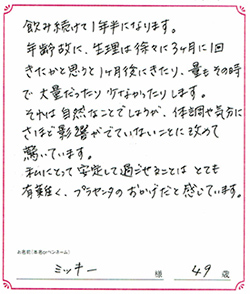 飲み続けて1年半になります。
年齢故に、生理は徐々に3ヶ月に1回
きたかと思うと1ヶ月後にきたり、量もその時
で大量だったり少なかったりします。
それは自然なことでしょうが、体調や気分に
さほど影響がでていないことに改めて
驚いています。
私にとって安定して過ごせることはとても
有難く、プラセンタのおかげだと感じています。
お名前(本名orペンネーム)
ミッキー 様 49歳